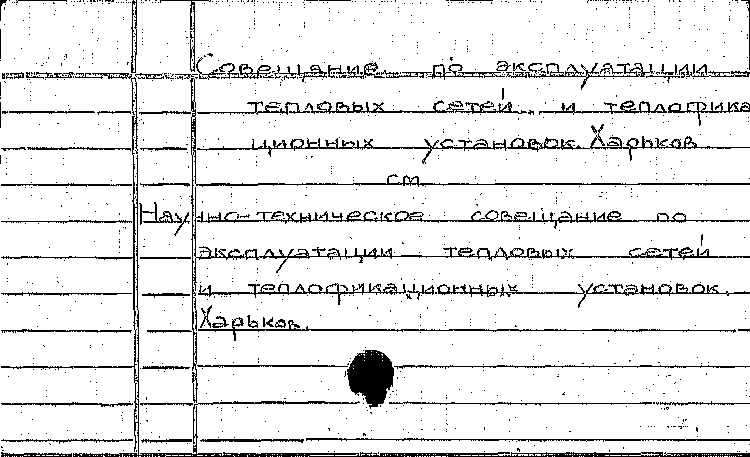 Совещание по эксплуатации
тепловых сетей и теплофика
ционных установок. Харьков
см
Научно-техническое совещание по
эксплуатации тепловых сетей
и теплофикационных установок.
Харьков.